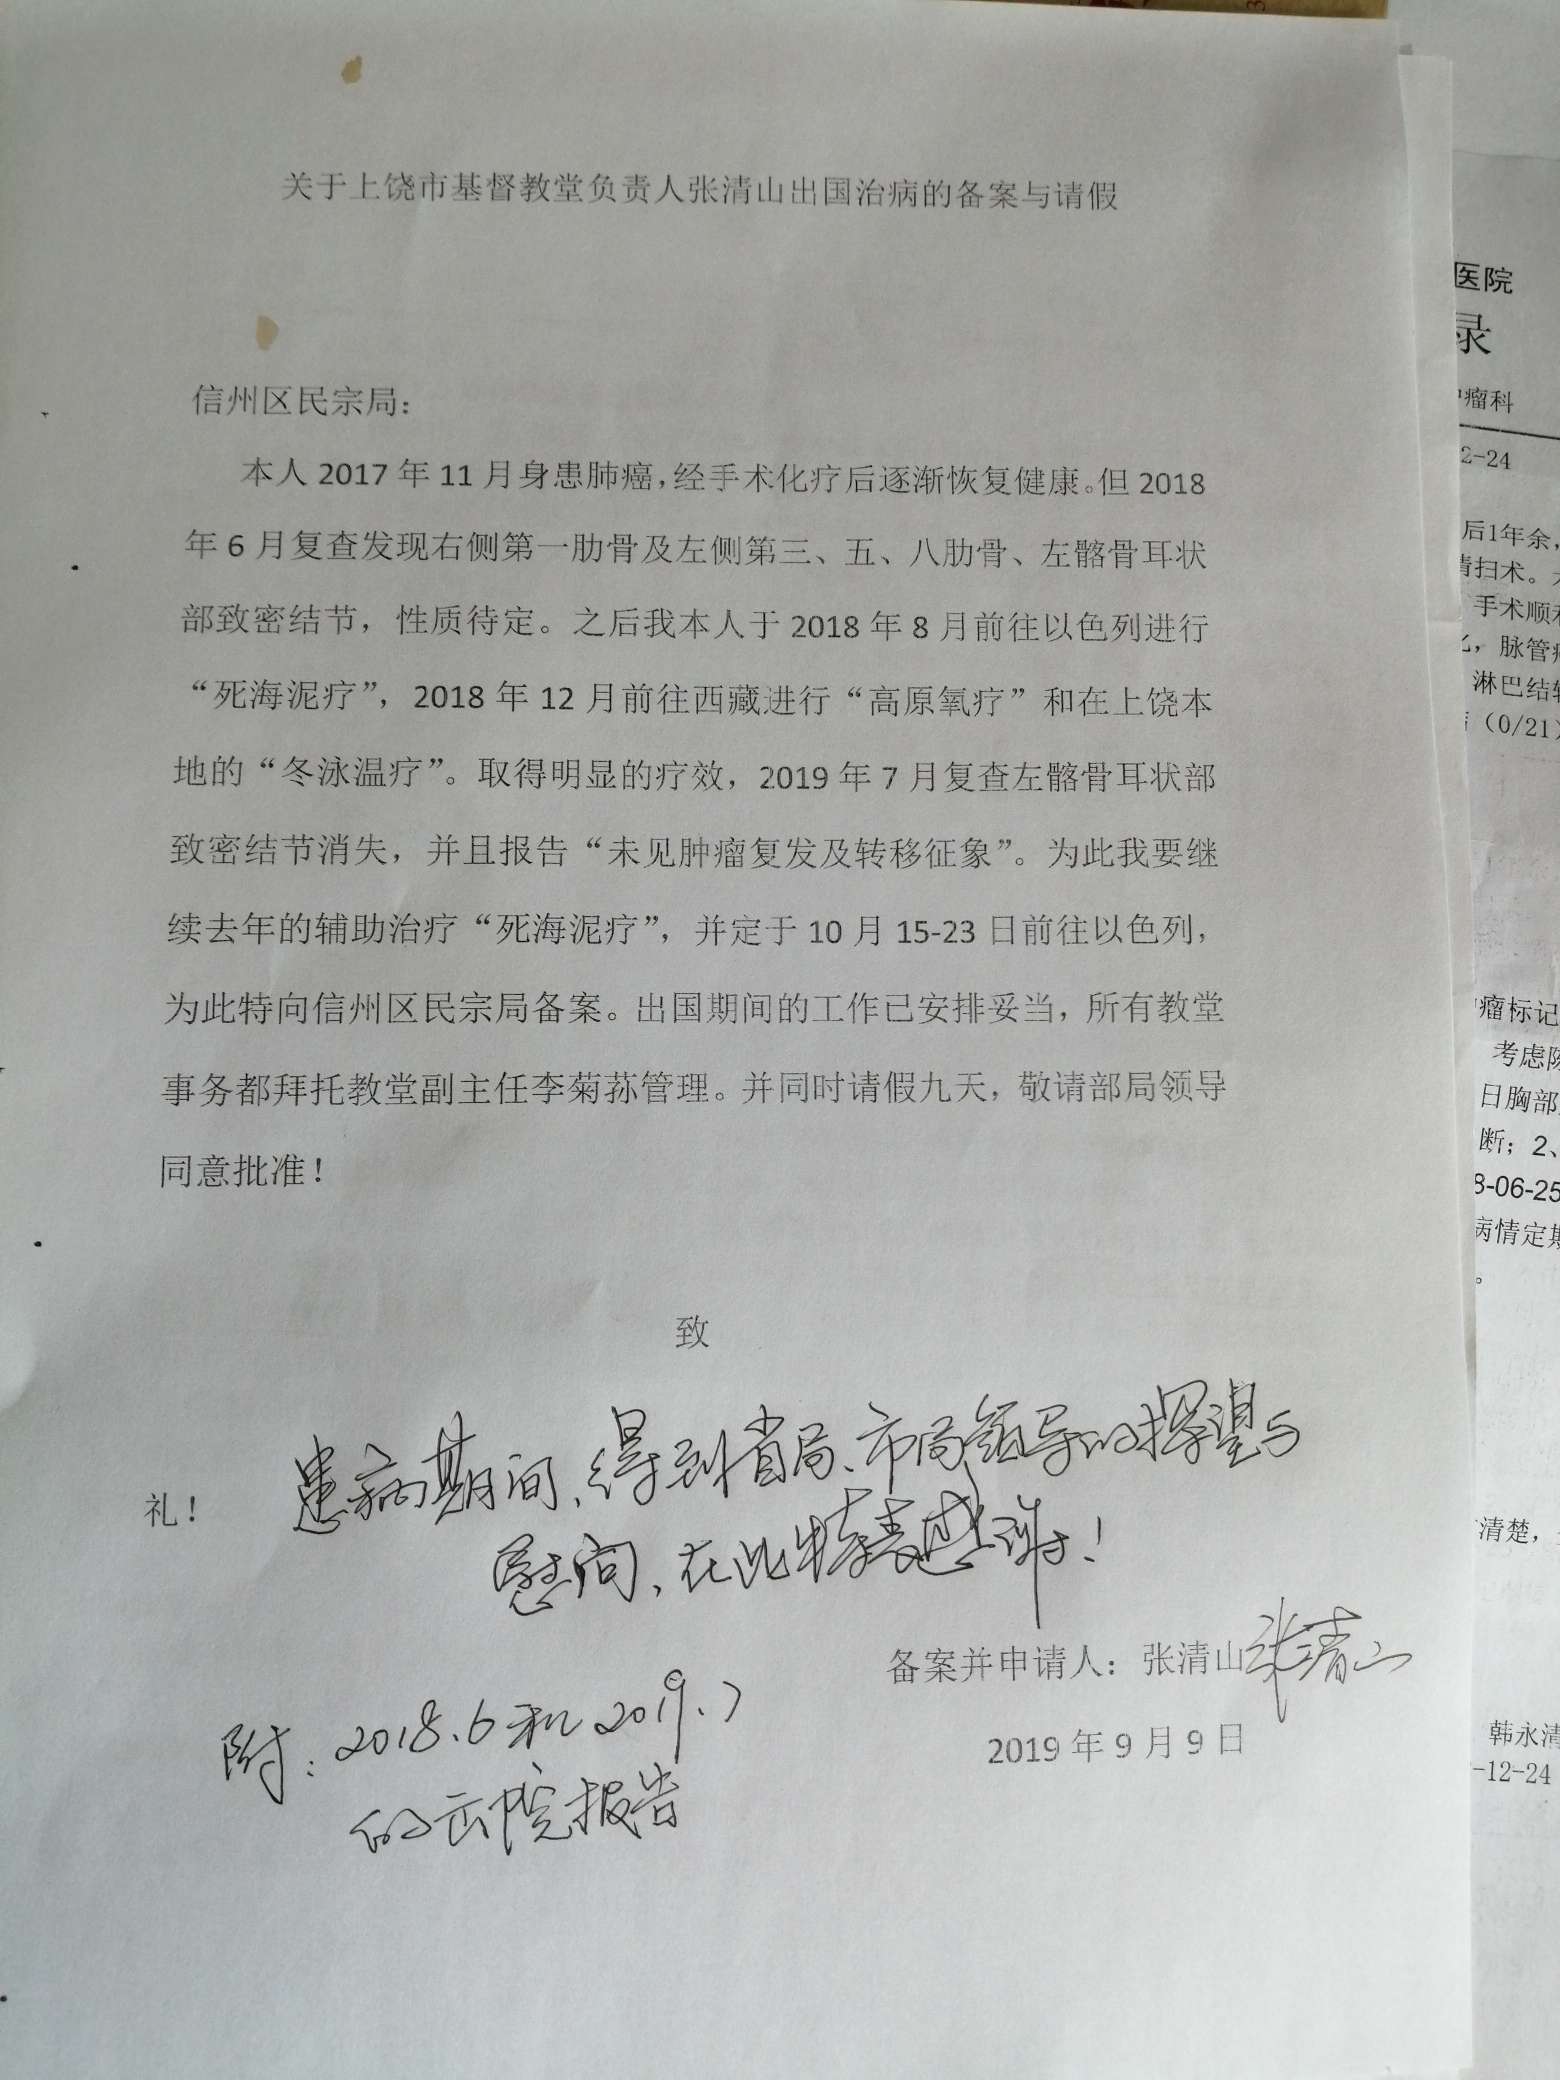 关于上饶市基督教堂负责人张清山出国治病的备案与请假
信州区民宗局：
本人 2017 年 11 月身患肺癌，经手术化疗后逐渐恢复健康。但 2018
年 6 月复查发现右侧第一肋骨及左侧第三、五、八肋骨、左髂骨耳状
部致密结节，性质待定。之后我本人于 2018 年 8 月前往以色列进行
“死海泥疗”，2018 年 12 月前往西藏进行“高原氧疗”和在上饶本
地的“冬泳温疗”。取得明显的疗效，2019 年 7 月复查左髂骨耳状部
致密结节消失，并且报告“未见肿瘤复发及转移征象”。为此我要继
续去年的辅助治疗“死海泥疗”，并定于 10 月 15-23 日前往以色列，
为此特向信州区民宗局备案。出国期间的工作已安排妥当，所有教堂
事务都拜托教堂副主任李菊荪管理。并同时请假九天，敬请部局领导
同意批准！
致
礼！
患病期间、得到省局、市局领导的探望与
慰问、在此特表感谢！
备案并申请人：张清山 张清山
2019 年 9 月 9 日
附：2018.6和2019.7
的医院报告
医院
录
瘤科
2-24
后1年余，
清扫术。
手术顺利
脉管
淋巴结
（0/21）
瘤标记
考虑
日胸部
断；2、
8-06-25
病情定期
。
清楚，
韩永清
-12-24